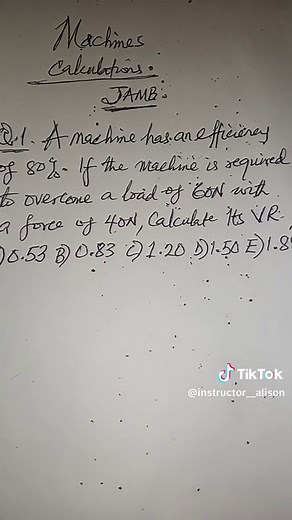 Machines
Calculations.
JAMB.
Q.1. A machine has an efficiency
of 80%. If the machine is required
to overcome a load of 60N with
a force of 40N, Calculate its VR.
)0.53 B) 0.83 C) 1.20 D) 1.50 E) 1.8
TikTok
@instructor__alison